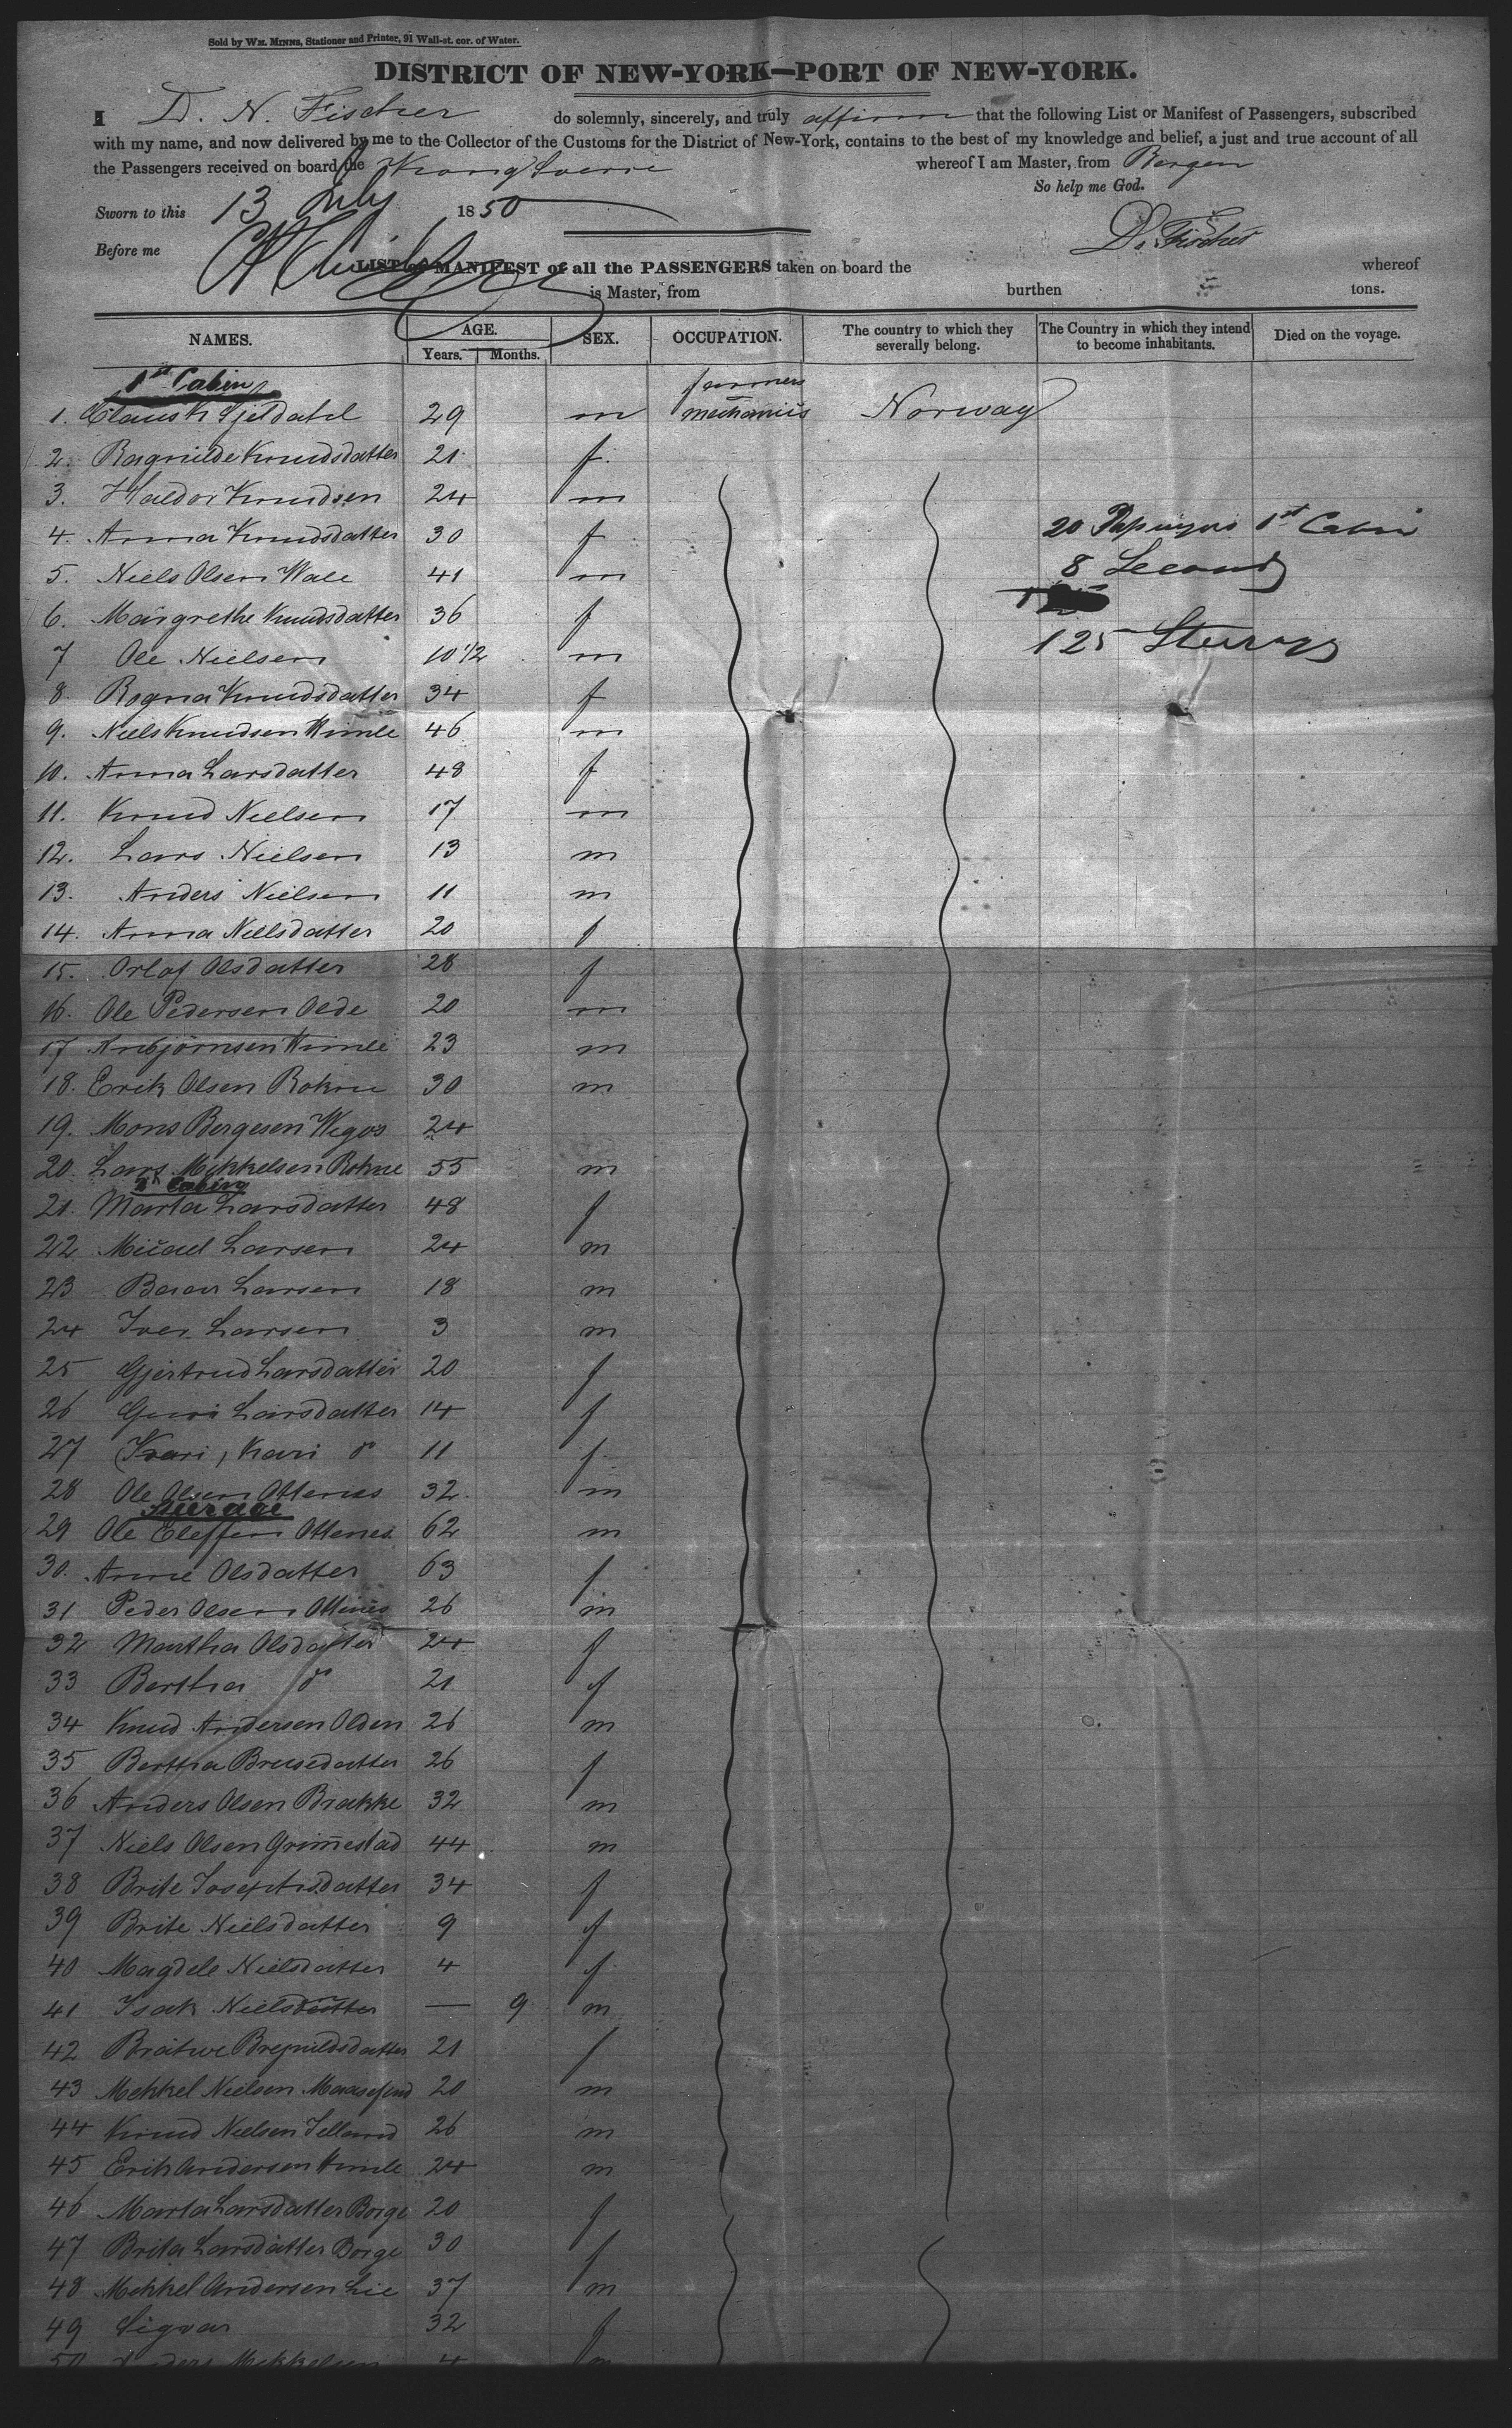 Sold by WM. MINNS, Stationer and Printer, 91 Wall-st. cor. of Water.
DISTRICT OF NEW-YORK—PORT OF NEW-YORK.
I D. N. Fischer do solemnly, sincerely, and truly affirm that the following List or Manifest of Passengers, subscribed
with my name, and now delivered by me to the Collector of the Customs for the District of New-York, contains to the best of my knowledge and belief, a just and true account of all
the Passengers received on board the Kong Sverre whereof I am Master, from Bergen
So help me God.
Sworn to this 13 July 1850
D. Fischer
Before me
LIST or MANIFEST of all the PASSENGERS taken on board the whereof
is Master, from burthen tons.
NAMES. AGE. Years. Months. SEX. OCCUPATION. The country to which they severally belong. The Country in which they intend to become inhabitants. Died on the voyage.
1st Cabin farmers
1. Claus K Gjeldahl 29 m mechanics Norway
2. Ragnilde Knudsdatter 21 f
3. Haldor Knudsen 24 m
4. Anna Knudsdatter 30 f 20 Passengers 1st Cabin
5. Niels Olsen Wale 41 m 8 Second
6. Margrethe Knudsdatter 36 f
7 Ole Nielsen 10 1/2 m 125 Steerage
8. Rogna Knudsdatter 34 f
9. Niels Knudsen Himle 46 m
10. Anna Larsdatter 48 f
11. Knud Nielsen 17 m
12. Lars Nielsen 13 m
13. Anders Nielsen 11 m
14. Anna Nielsdatter 20 f
15. Orlof Olsdatter 28 f
16. Ole Pedersen Oede 20 m
17 Anbjörnsen Himle 23 m
18. Erik Olsen Rokne 30 m
19. Mons Bergesen Wegos 24
20. Lars Mekkelsen Rokne 55 m
2d Cabin
21. Marta Larsdatter 48 f
22 Micael Larsen 24 m
23 Larsen 18 m
24 Iver Larsen 3 m
25 Gjertrud Larsdatter 20 f
26 Guri Larsdatter 14 f
27 Kari do 11 f
28 Ole Olsen Ottenes 32 m
Steerage
29 Ole Eleffsen Ottenes 62 m
30. Anne Olsdatter 63 f
31 Peder Olsen Ottenes 26 m
32 Martha Olsdatter 24 f
33 Bertha do 21 f
34 Knud Andersen Olden 26 m
35 Bertha Brusedatter 26 f
36 Anders Olsen Brakke 32 m
37 Niels Olsen Grimestad 44 m
38 Brite Josephsdatter 34 f
39 Brite Nielsdatter 9 f
40 Magdele Nielsdatter 4 f
41 Isak Nielsdatter — 9 m
42 Brynildsdatter 21 f
43 Mekkel Nielsen 20 m
44 Knud Nielsen Selland 26 m
45 Erik Andersen Himle 24 m
46 Marta Larsdatter Borge 20 f
47 Brita Larsdatter Borge 30 f
48 Mekkel Andersen Lie 37 m
49 Sigvar 32 f
50 Anders Mekkelsen 4 m